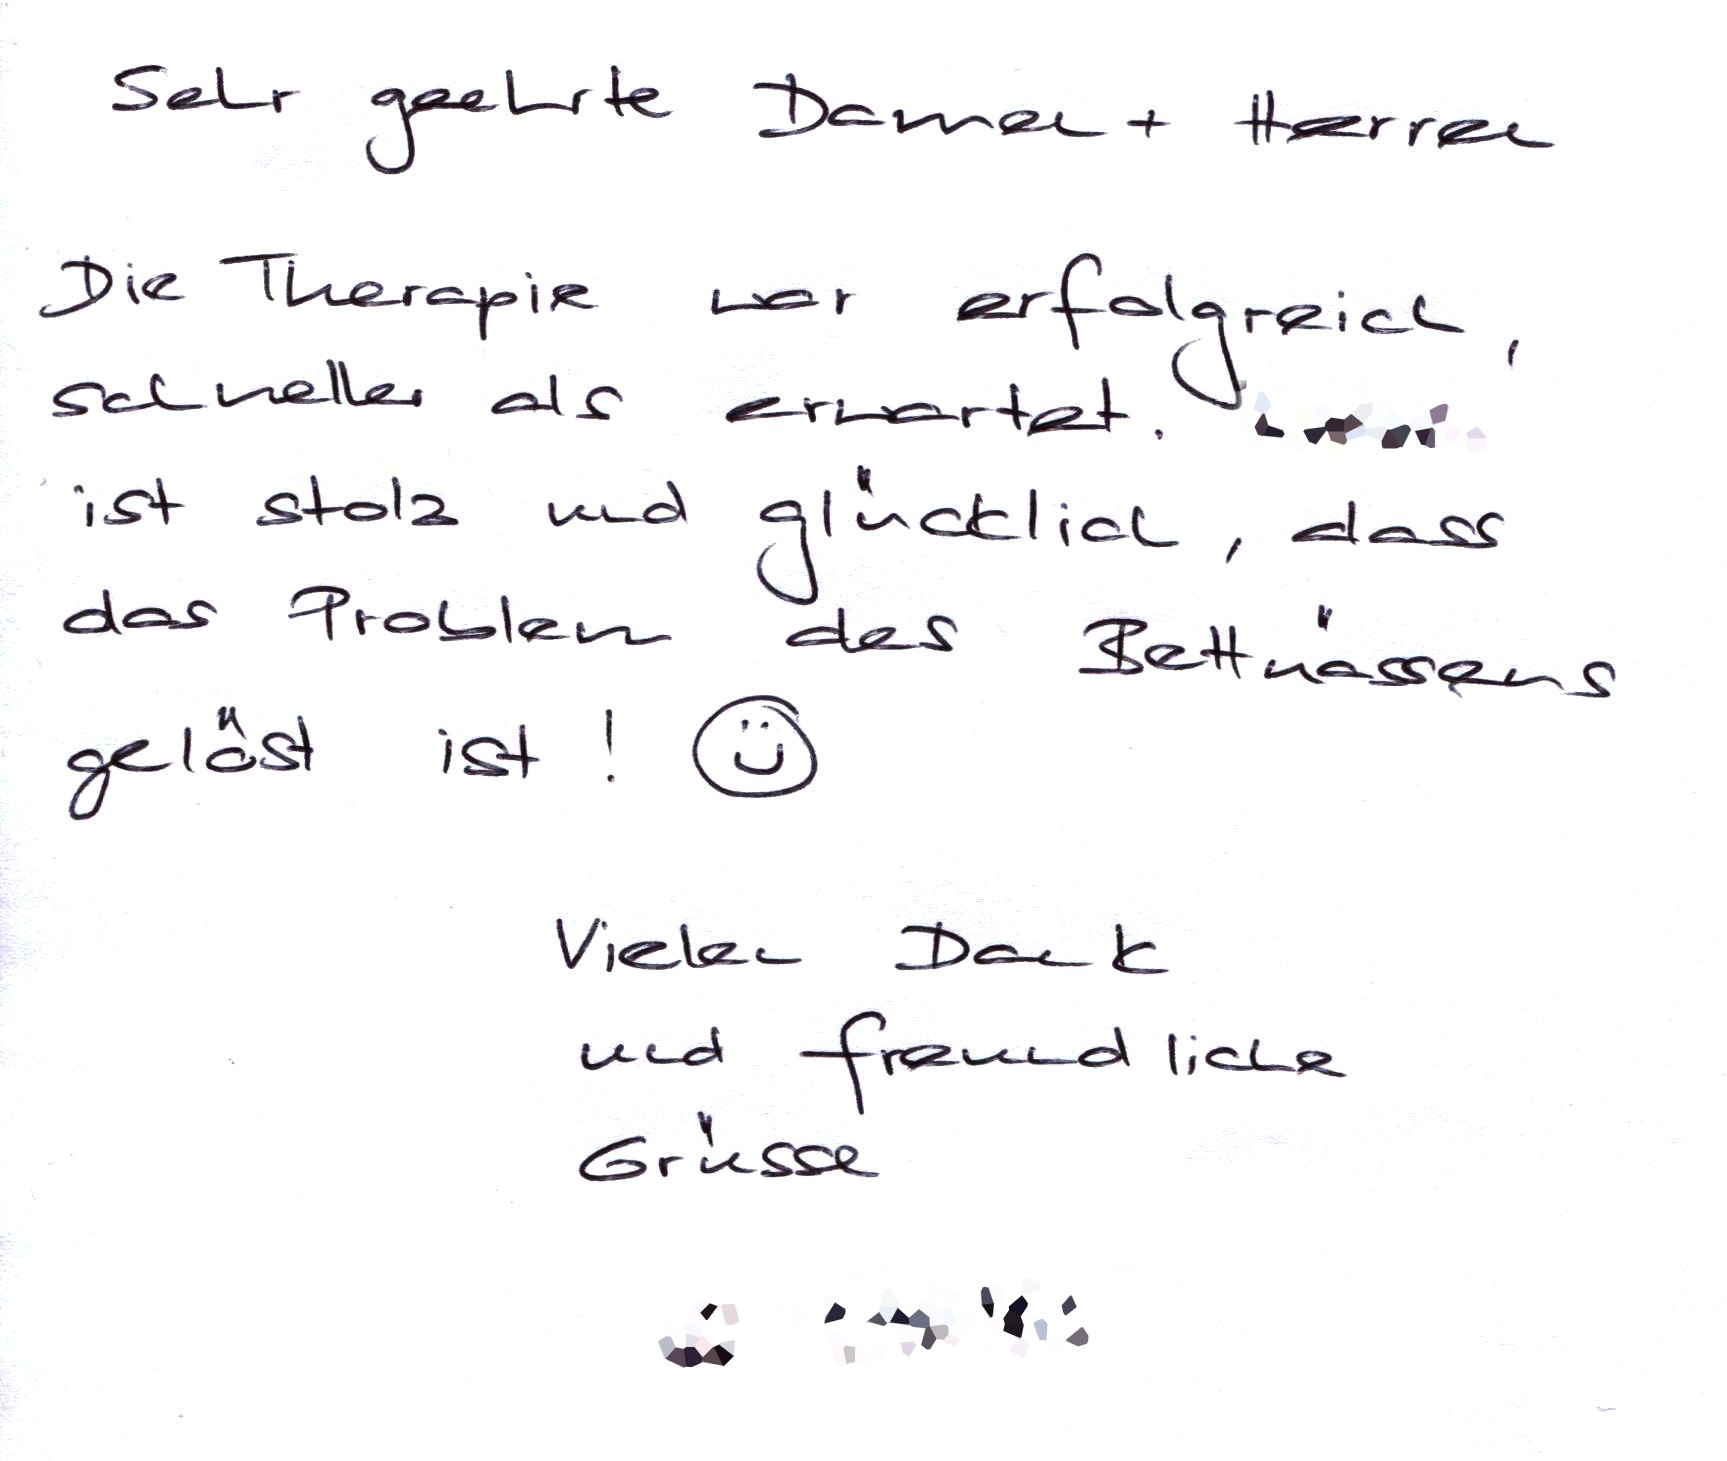 Sehr geehrte Damen + Herren
Die Therapie war erfolgreich,
schneller als erwartet.
ist stolz und glücklich, dass
das Problem des Bettnässens
gelöst ist!
Vielen Dank
und freundliche
Grüsse